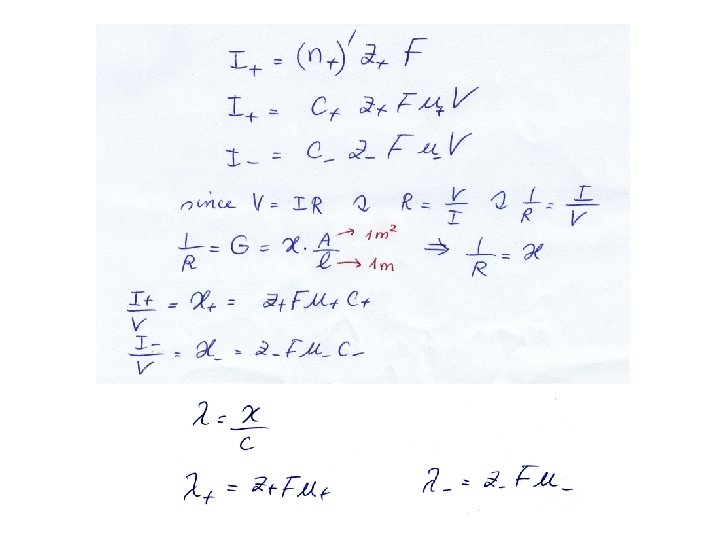 I₊ = (n₊)′ z₊ F
I₊ = C₊ z₊ F μ₊ V
I₋ = C₋ z₋ F μ₋ V
since V = IR ⇒ R = V/I ⇒ 1/R = I/V
1/R = G = ϰ · A/l → 1 m² → 1m ⇒ 1/R = ϰ
I₊/V = ϰ₊ = z₊ F μ₊ C₊
I₋/V = ϰ₋ = z₋ F μ₋ C₋
λ = ϰ/c
λ₊ = z₊ F μ₊ λ₋ = z₋ F μ₋